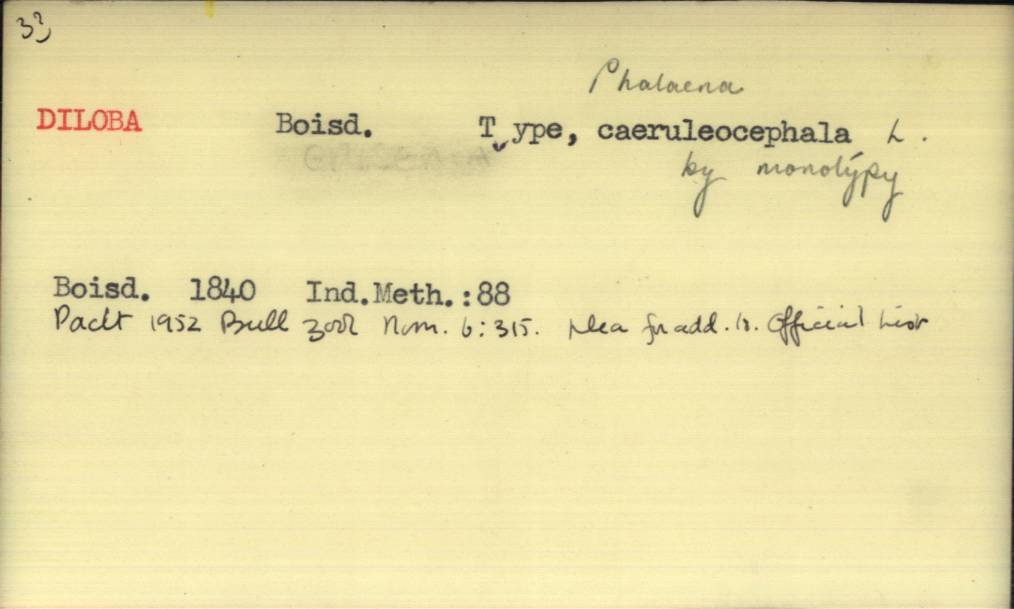 Phalaena
DILOBA Boisd. Type, caeruleocephala L.
by monotypy
Boisd. 1840 Ind.Meth.:88
Paclt 1952 Bull zool Nom. 6:315. plea for add. to Official List